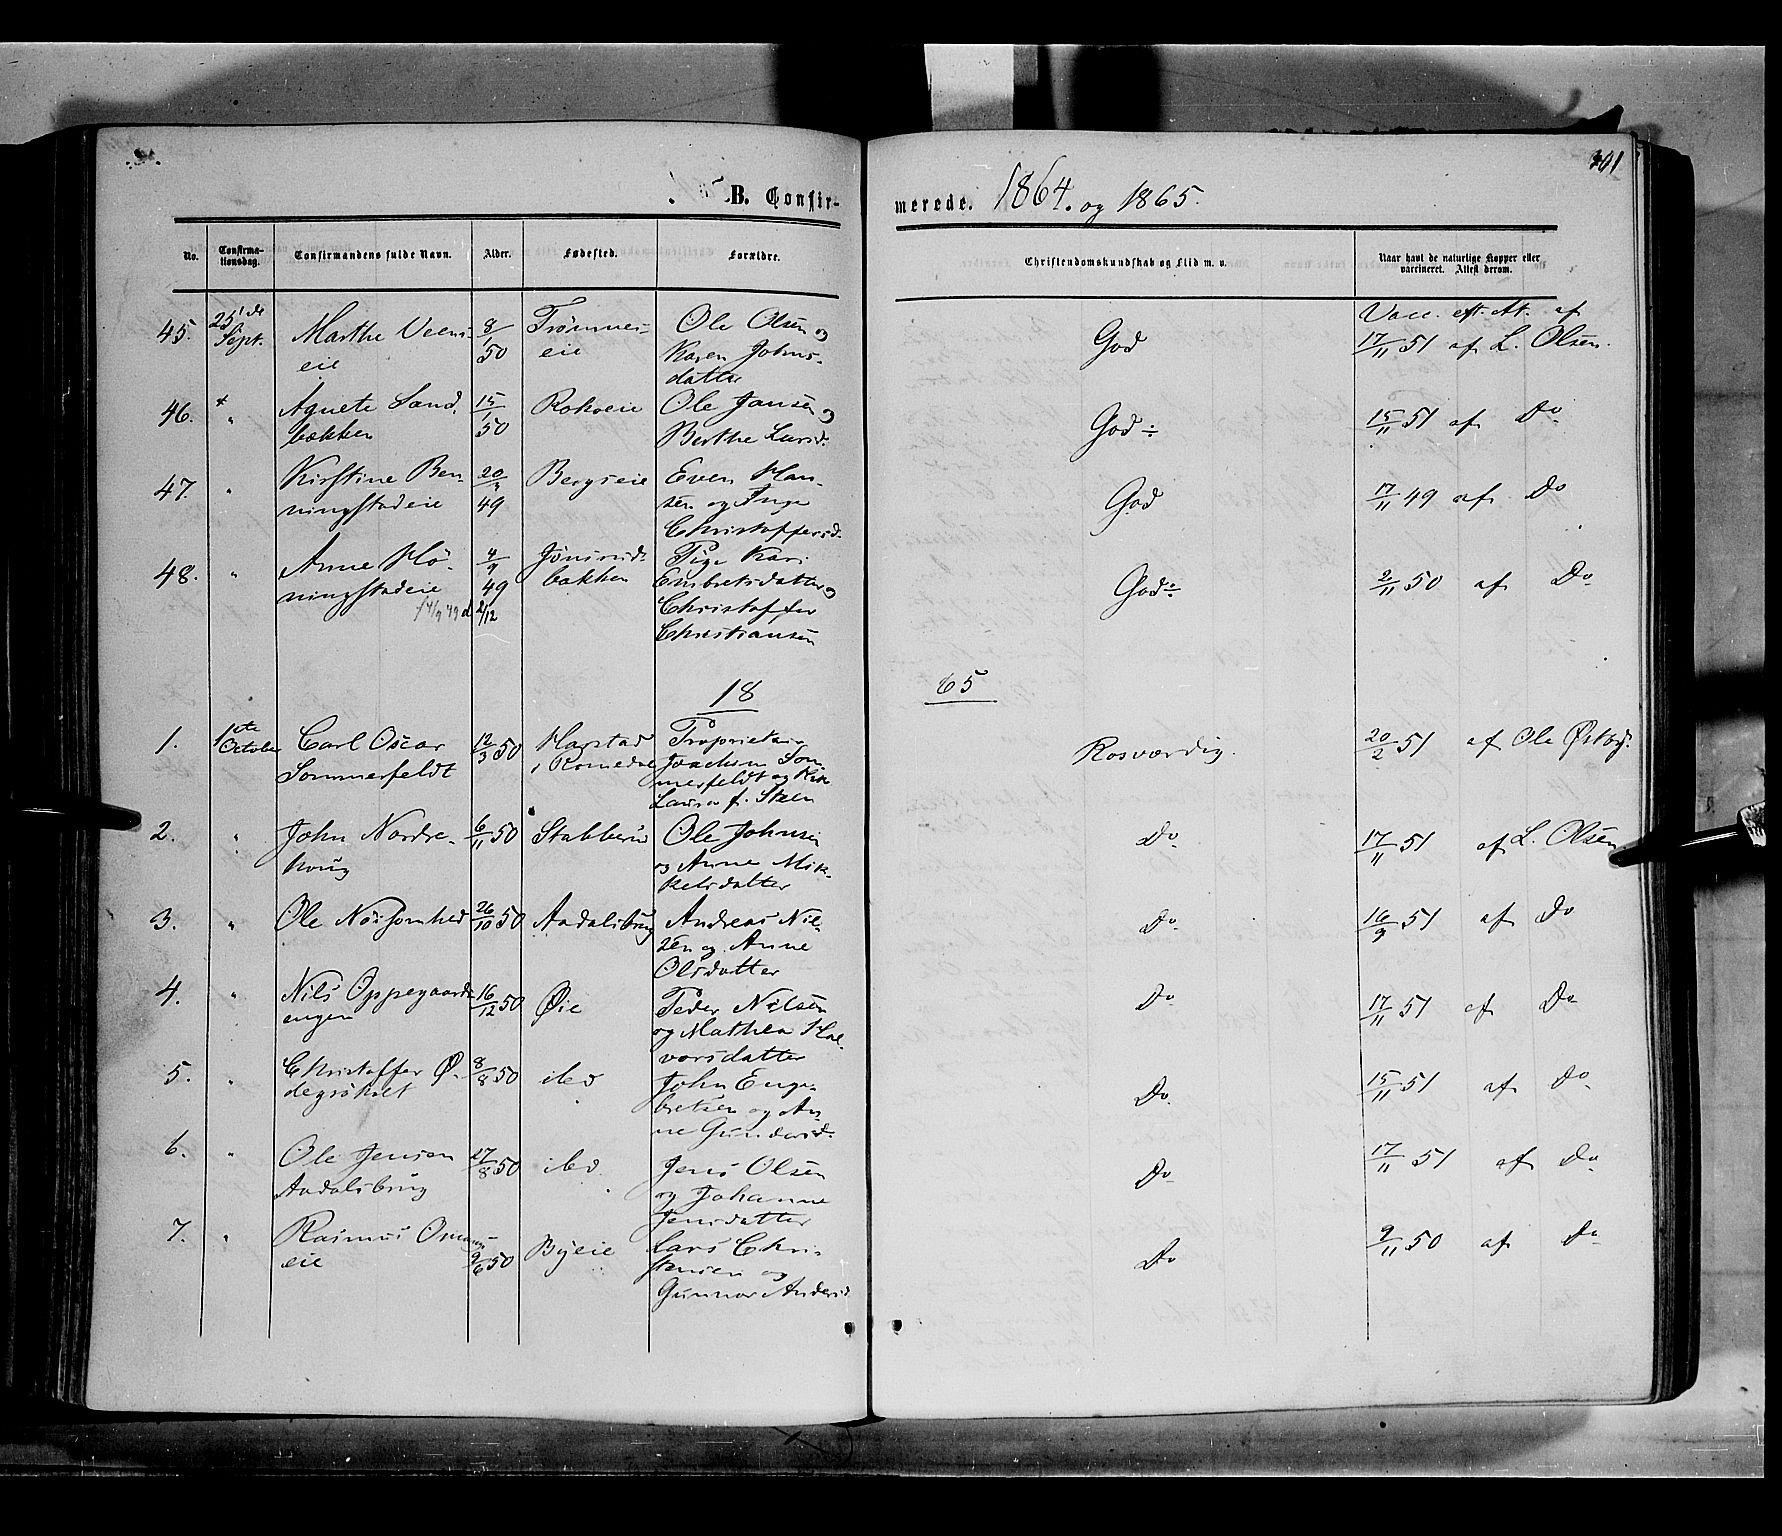 B. Confir-
merede. 1864. og 1865.
No.
Confirma-
tionsdag.
Confirmandens fulde Navn.
Alder.
Fødested.
Forældre.
Christendomskundskab og Flid m. v.
Naar havt de naturlige Kopper eller
vaccineret. Attest derom.
45.
25de
Sept.
Marthe Veens-
eie
8/1
50
Trømmes-
eie
Ole Olsen og
Karen Johns-
datter
God
Vacc. eft. Att. af
17/11 51 af L. Olsen.
46.
"
Agnete Sand-
bækken
15/1
50
Rokoeie
Ole Jansen og
Berthe Larsd.
God ÷
15/11 51 af Do
47.
"
Kirstine Ben-
ningstadeie
20/
49
Bergseie
Even Han-
sen og Inge
Christoffersd.
God
17/11 49 af Do
48.
"
Anne Hø-
ningstadeie
4/9
49
2/12
Jønsrud-
bakken
Pige Kari
Embretsdatter og
Christoffer
Christiansen
God ÷
2/11 50 af Do
18
65
1.
1ste
October
Carl Oscar
Sommerfeldt
12/3 50
Harstad
i Romedal
Proprietær
Joachim Som-
merfeldt og
Laura f. Steen
Rosværdig.
20/2 51 af Ole Østby.
2.
"
John Nordre-
houg
6/11 50
Stabberud
Ole Johnsen
og Anne Mik-
kelsdatter
Do
17/11 51 af L. Olsen
3.
"
Ole Nøisomhed
26/10 50
Aadalsbrug
Andreas Nil-
sen og Anne
Olsdatter
Do
16/9 51 af Do
4.
"
Nils Oppegaards-
engen
16/12 50
Øie
Peder Nilsen
og Mathea Hal-
vorsdatter
Do
17/11 51 af Do
5.
"
Christoffer Ø-
degaiset
8/8 50
ibid
John Enge-
bretsen og An-
ne Gundersd.
Do.
15/11 51 af Do
6.
"
Ole Jensen
Aadalsbrug
27/8 50
ibid.
Jens Olsen
og Johanne
Jensdatter
Do
17/11 51 af Do
7.
"
Rasmus
eie
9/6 50
Byeie
Lars Chri-
stensen og
Gunnor Andersd.
Do
9/11 50 af Do